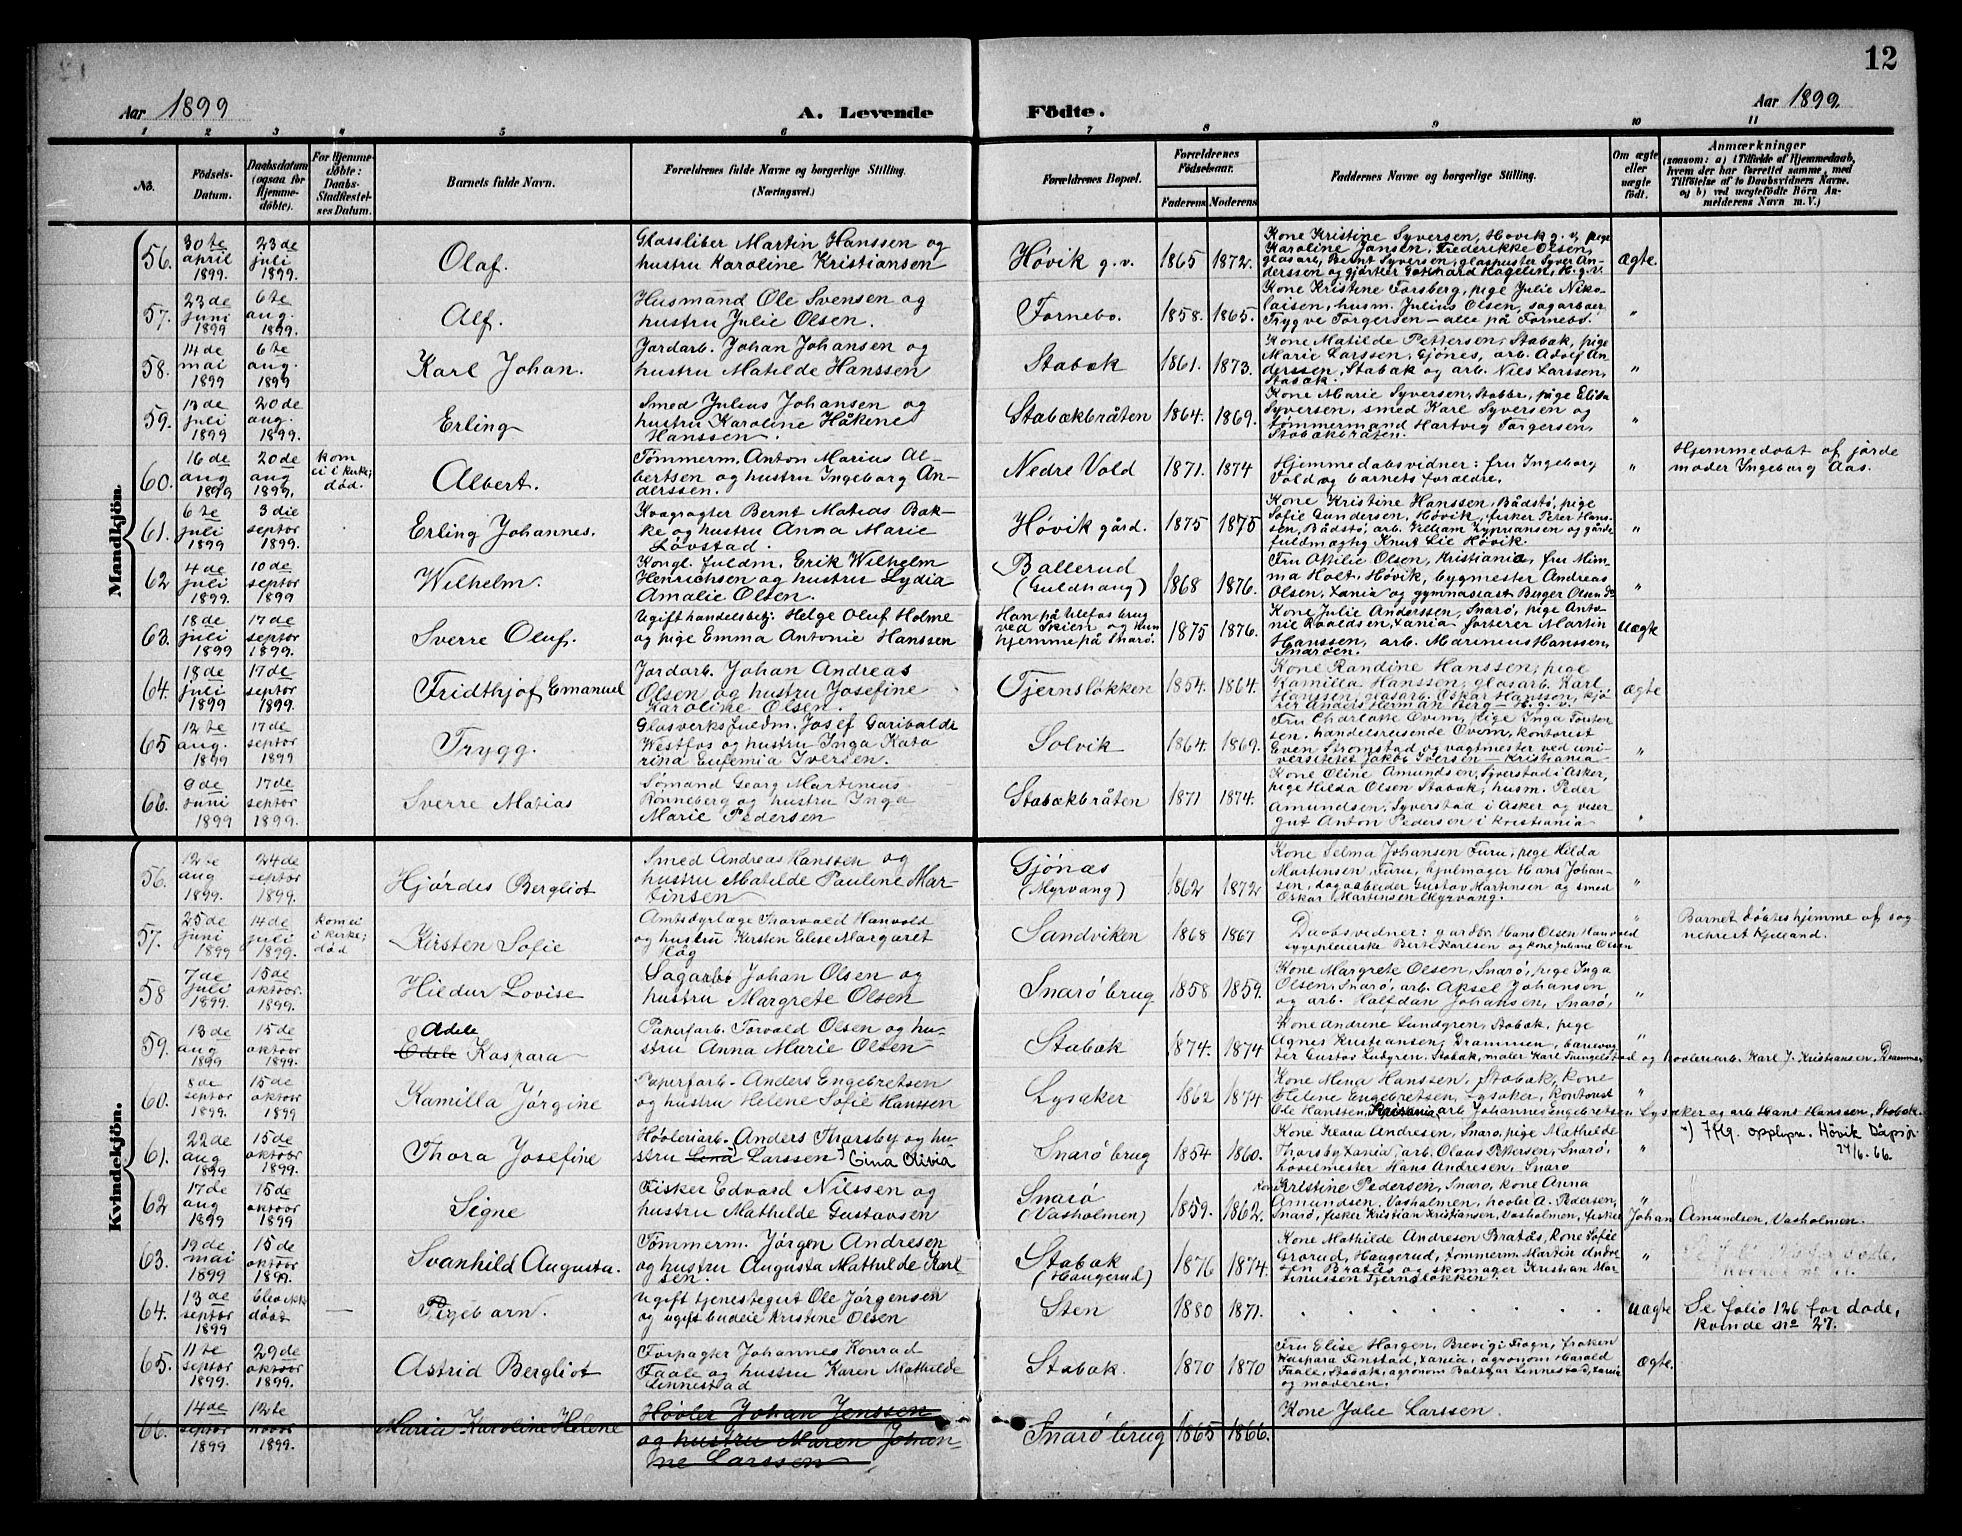 12
Aar 1899
A. Levende Födte.
Aar 1899.
1 2 3 4 5 6 7 8 9 10 11
No.
Födsels-Datum.
Daabsdatum (ogsaa for Hjemme-döbte).
For Hjemme-döbte: Daabs-Stadfæstel-ses Datum.
Barnets fulde Navn.
Forældrenes fulde Navne og borgerlige Stilling. (Næringsvei.)
Forældrenes Bopæl.
Forældrenes Födselsaar.
Faderens Moderens
Faddernes Navne og borgerlige Stilling.
Om ægte eller uægte födt.
Anmærkninger
(saasom: a) i Tilfælde af Hjemmedaab, hvem der har forrettet samme, med Tilföielse af to Daabsvidners Navne. og b) ved uægtefödte Börn An-melderens Navn m. V.)
Mandkjön.
56. 30te april 1899. 23de juli 1899. Olaf. Glassliber Martin Hanssen og hustru Karoline Kristiansen Høvik g.v. 1865 1872. Kone Kristine Syversen, Høvik g.v., pige Karoline Jansen, Frederikke Olsen, glasarb. Bernt Syversen, glaspuster Syver Anderssen og gjørtler Gotthard Hagelin, H.g.v. ægte.
57. 23de juni 1899 6te aug. 1899. Alf. Husmand Ole Svensen og hustru Julie Olsen. Fornebo. 1858. 1865. Kone Kristine Forsberg, pige Julie Nikolaisen, husm. Julius Olsen, sagarbeer Trygve Torgersen – alle på Fornebo. "
58. 14de mai 1899 6te aug. 1899 Karl Johan. Jordarb. Johan Johansen og hustru Matilde Hanssen Stabæk 1861. 1873. Kone Matilde Pettersen, Stabæk, pige Marie Larssen, Gjønes, arb. Adolf Anderssen, Stabæk og arb. Nils Larssen, Stabæk. "
59. 13de juli 1899 20de aug. 1899. Erling Smed Julius Johansen og hustru Karoline Håkine Hanssen. Stabækbråten 1864. 1869. Kone Marie Syversen, Stabbr., pige Elisa Syversen, smed Karl Syversen og tømmermand Hartvig Torgersen, Stabækbråten. "
60. 16de aug 1899 20de aug 1899. kom ei i kirke; død. Albert. Tømmerm. Anton Marius Albertsen og hustru Ingeborg Anderssen. Nedre Vold 1871. 1874 Hjemmedabsvidner: fru Ingeborg Vold og barnets forældre. " Hjemmedøbt af jordemoder Ingeborg Aas.
61. 6te juli 1899 3die septbr 1899. Erling Johannes. Kvægrøgter Bernt Matias Bakke og hustru Anna Marie Løvstad. Høvik gård. 1875 1875 Kone Kristine Hanssen, Bådstø, pige Sofie Gundersen, Høvik, fisker Peter Hanssen, Bådstø, arb. Vilham Zypriansen og gårdsfuldmægtig Knut Lie Høvik. "
62 4de juli 1899. 10de septbr 1899 Wilhelm. Kongl. fuldm. Erik Wilhelm Henrichsen og hustru Lydia Amalie Olsen. Ballerud (Guldhaug) 1868 1876. Fru Otilie Olsen, Kristiania, fru Mimma Holt, Høvik, bygmester Andreas Olsen, Xania og gymnasiast Birger Olsen, Do "
63. 18de juli 1899 17de septbr 1899 Sverre Oluf. Ugift handelsbetj. Helge Oluf Holme og pige Emma Antonie Hanssen Han på Ulefos brug ved Skien og hun hjemme på Snarø. 1875 1876. Kone Julie Anderssen, Snarø, pige Antonie Havoldsen, Xania, sorterer Martin Hanssen, arb. Marinius Hanssen, Snarøen. Uægte
64. 18de juli 1899 17de septbr 1899 Fridthjof Emanuel Jordarb. Johan Andreas Olsen og hustru Josefine Karoline Olsen. Tjernsløkken 1854. 1864. Kone Randine Hanssen, pige Kamilla Hanssen, glasarb. Karl Hanssen, glasarb. Oskar Hanssen, kjører Anders Herman Berg – H.g.v. ægte
65 12te aug. 1899 17de septbr 1899 Trygg. Glasverksfuldm. Josef Garibaldi Westfos og hustru Inga Katarina Eufemia Iversen. Solvik 1864. 1869. Fru Charlotte Ovim, pige Inga handelsreisende Ovim, kontorist Even Strømstad og vagtmester ved universitetet Jakob Iversen – Kristiania "
66. 9de juni 1899 17de septbr 1899. Sverre Matias Sømand Georg Martinius Rønneberg og hustru Inga Marie Pedersen Stabækbråten 1871 1874. Kone Oline Amundsen, Syverstad i Asker, pige Hilda Olsen Stabæk, husm. Peder Amundsen, Syverstad i Asker og visergut Anton Pedersen i Kristiania "
Kvindekjön.
56. 12te aug 1899. 24de septbr 1899. Hjørdis Bergliot Smed Andreas Hanssen og hustru Matilde Pauline Martinsen Gjønæs (Myrvang) 1862 1872 Kone Selma Johansen Furu, pige Hilda Martensen, Furu, hjulmager Hans Johansen, dagarbeider Gustav Martinsen og smed Oskar Martinsen Myrvang. "
57. 25de juni 1899 14de juli 1899. kom ei i kirke; død Kirsten Sofie Amtsdyrlæge Thorvald Hanvold og hustru Kirsten Elise Margaret Høg Sandviken 1868 1867 Daabsvidner: gardbr. Hans Olsen Hanvold sygepleierske Berte Karlsen og kone Juliane Olsen " Barnet døbtes hjemme af sognehrest Kjelland.
58 7de juli 1899. 15de oktobr 1899. Hildur Lovise Sagarb. Johan Olsen og hustru Margrete Olsen Snarø brug 1858 1859. Kone Margrete Olsen, Snarø, pige Inga Olsen, Snarø, arb. Aksel Johansen og arb. Halfdan Johansen, Snarø, "
59. 13de aug 1899. 15de oktobr 1899. Adele Edele Kaspara Papirfarb. Torvald Olsen og hustru Anna Marie Olsen Stabæk 1874. 1874 Kone Andrine Lundgren, Stabæk, pige Agnes Kristiansen, Drammen, banevogter Gustav Lundgren, Stabæk, maler Karl Tangelstad og høvleriarb. Karl J. Kristiansen, Drammen "
60. 8de septbr 1899. 15de oktobr 1899 Kamilla Jørgine Papirfarb. Anders Engebretsen og hustru Helene Sofie Hanssen Lysaker 1862 1874 Kone Mina Hanssen, Stabæk, kone Helene Engebretsen, Lysaker, kontorist Ole Hanssen, Kristiania, arb. Johannes Engebretsen Lysaker og arb. Hans Hanssen, Stabæk. "
61. 22de aug 1899 15de oktobr 1899. Thora Josefine Høvleriarb. Anders Thorsby og hustru Lena Larssen Gina Olivia Snarø brug 1854 1860. Kone Klara Andresen, Snarø, pige Mathilde Thorsby Xania, arb. Olaus Pettersen, Snarø, høvelmester Hans Andresen, Snarø " *) Iflg. opplysn. Høvik Dåpsjr. 24/6-66.
62 17de aug 1899 15de oktobr 1899 Signe Fisker Edvard Nilssen og hustru Mathilde Gustavsen Snarø (Vasholmen) 1859. 1862. Kone Kristine Pedersen, Snarø, kone Anna Amundsen, Vasholmen, høvler A. Pedersen, Snarø, fisker Kristian Kristiansen, Vasholmen, fisker Johan Amundsen, Vasholmen. "
63. 19de mai 1899 15de oktobr 1899. Svanhild Augusta. Tømmerm. Jørgen Andresen og hustru Augusta Mathilde Karlsen. Stabæk (Haugerud) 1876 1874. Kone Mathilde Andresen Bratås, kone Sofie Grorud, Haugerud, tømmerm. Martin Andresen Bratås og skomager Kristian Martinussen Tjernsløkken. "
64. 13de septbr 1899 blev ikke døbt — Pigebarn. Ugift tjenestegut Ole Jørgensen og ugift budeie Kristine Olsen Sten 1880 1871. Uægte Se folio 126 for døde, kvinde no 27.
65. 11te septbr 1899. 29de oktobr 1899. Astrid Bergliot Forpagter Johannes Konrad Faale og hustru Karen Mathilde Linnestad Stabæk. 1870 1870 Fru Elise Horgen, Brevig i Frogn, frøken Kaspara Finstad, Xania, agronom Harald Faale, Stabæk, agronom Baltzar Linnestad, Xania og moderen. ægte.
66. 14de septbr 1899 12te novbr 1899. Maria Karoline Helene Høvler Johan Jenssen og hustru Maren Johanne Larssen Snarø brug 1865 1866. Kone Julie Larssen.